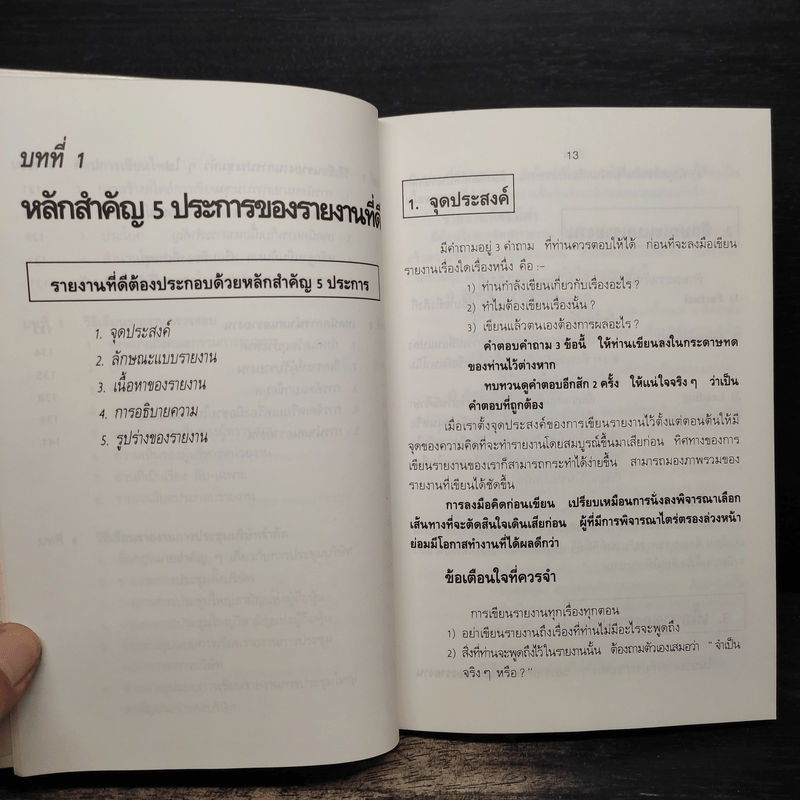 บทที่ 1
หลักสำคัญ 5 ประการของรายงานที่ดี
รายงานที่ดีต้องประกอบด้วยหลักสำคัญ 5 ประการ
1. จุดประสงค์
2. ลักษณะแบบรายงาน
3. เนื้อหาของรายงาน
4. การอธิบายความ
5. รูปร่างของรายงาน
13
1. จุดประสงค์
มีคำถามอยู่ 3 คำถาม ที่ท่านควรตอบให้ได้ ก่อนที่จะลงมือเขียน
รายงานเรื่องใดเรื่องหนึ่ง คือ :-
1) ท่านกำลังเขียนเกี่ยวกับเรื่องอะไร ?
2) ทำไมต้องเขียนเรื่องนั้น ?
3) เขียนแล้วตนเองต้องการผลอะไร ?
คำตอบคำถาม 3 ข้อนี้ ให้ท่านเขียนลงในกระดาษทด
ของท่านไว้ต่างหาก
ทบทวนดูคำตอบอีกสัก 2 ครั้ง ให้แน่ใจจริง ๆ ว่าเป็น
คำตอบที่ถูกต้อง
เมื่อเราตั้งจุดประสงค์ของการเขียนรายงานไว้ตั้งแต่ตอนต้นให้มี
จุดของความคิดที่จะทำรายงานโดยสมบูรณ์ขึ้นมาเสียก่อน ทิศทางของการ
เขียนรายงานของเราก็สามารถกระทำได้ง่ายขึ้น สามารถมองภาพรวมของ
รายงานที่เขียนได้ชัดขึ้น
การลงมือคิดก่อนเขียน เปรียบเหมือนการนั่งลงพิจารณาเลือก
เส้นทางที่จะตัดสินใจเดินเสียก่อน ผู้ที่มีการพิจารณาไตร่ตรองล่วงหน้า
ย่อมมีโอกาสทำงานที่ได้ผลดีกว่า
ข้อเตือนใจที่ควรจำ
การเขียนรายงานทุกเรื่องทุกตอน
1) อย่าเขียนรายงานถึงเรื่องที่ท่านไม่มีอะไรจะพูดถึง
2) สิ่งที่ท่านจะพูดถึงไว้ในรายงานนั้น ต้องถามตัวเองเสมอว่า “จำเป็น
จริง ๆ หรือ ?”